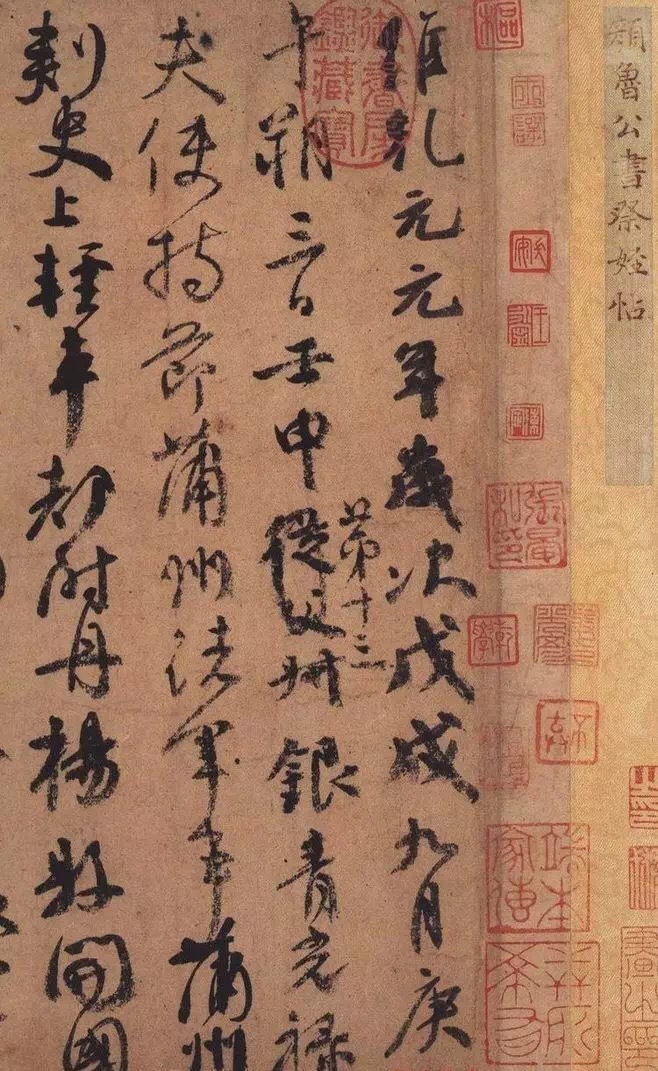 顏魯公書祭姪帖
張晏私印
御書房鑑藏寶
維乾元元年歲次戊戌九月庚
午朔三日壬申從父叔銀青光祿
第十三
夫使持節蒲州諸軍事蒲州
刺史上輕車都尉丹楊縣開國